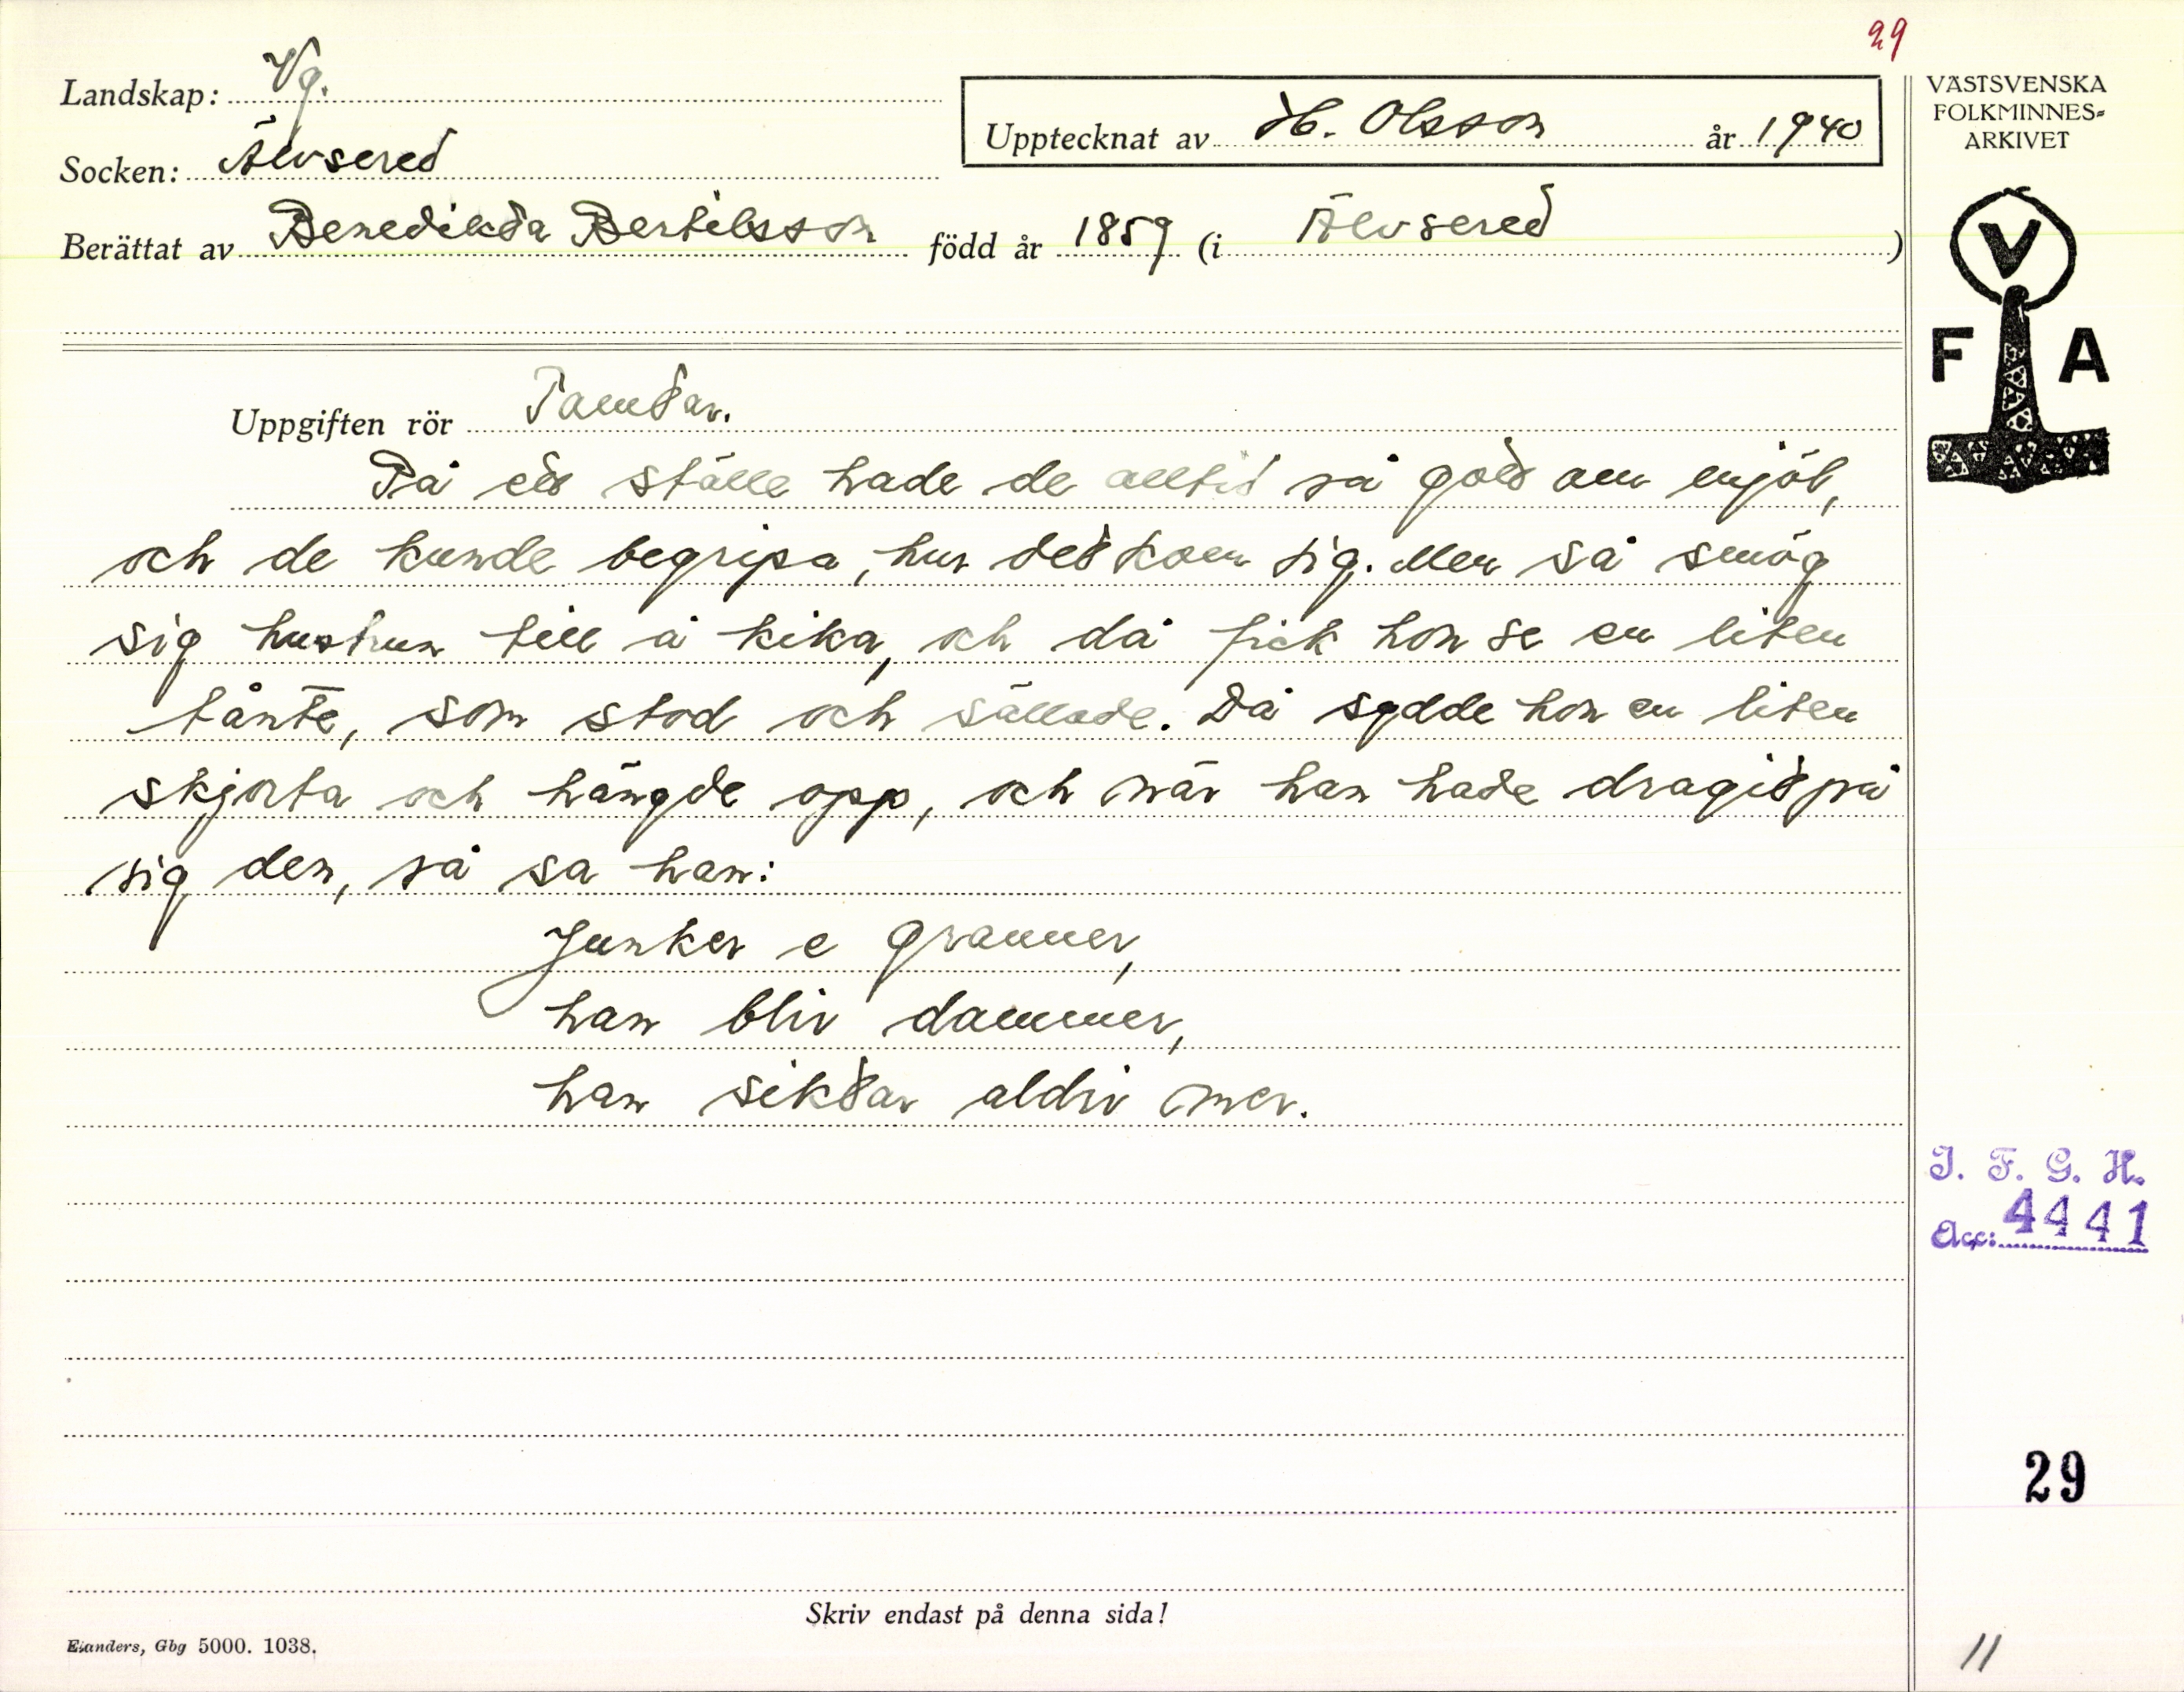 29
Landskap: Vg.
Upptecknat av H. Olsson år 1940
Socken: Älvsered
Berättat av Benedikta Bertilsson född år 1859 (i Älvsered)
VÄSTSVENSKA
FOLKMINNES-
ARKIVET
V
F A
Uppgiften rör Tomtar.
På ett ställe hade de alltid så gott om mjöl,
och de kunde begripa, hur det kom sig. Men så smög
sig hustrun till å kika, och då fick hon se en liten
tånte, som stod och sållade. Då sydde hon en liten
skjorta och hängde opp, och när han hade dragit på
sig den, så sa han:
Junker e grannner,
han blir dammer,
han siktar aldri mer.
I. F. G. H.
Acc: 4441
29
Skriv endast på denna sida!
Elanders, Gbg 5000. 1038.
11